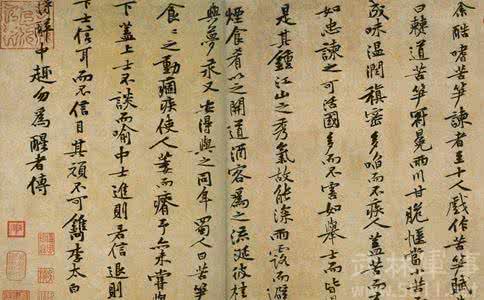 余酷嗜苦筍諫者至十人戲作苦筍賦
曰僰道苦筍冠冕兩川甘脆愜當小苦
成味溫潤縝密多啗而不疾人蓋苦而
如忠諫之可活國多而不害如舉士而皆
是其鍾江山之秀氣故能深雨露而避
煙食肴以之開道酒客為之流涎彼桂
與夢永又安得與之同年蜀人曰苦筍
食〻之動痼疾使人萎而瘠予亦未嘗與
下蓋上士不談而喻中士進則若信退則
下士信耳而不信目其頑不可鐫李太白
得醉中趣勿為醒者傳